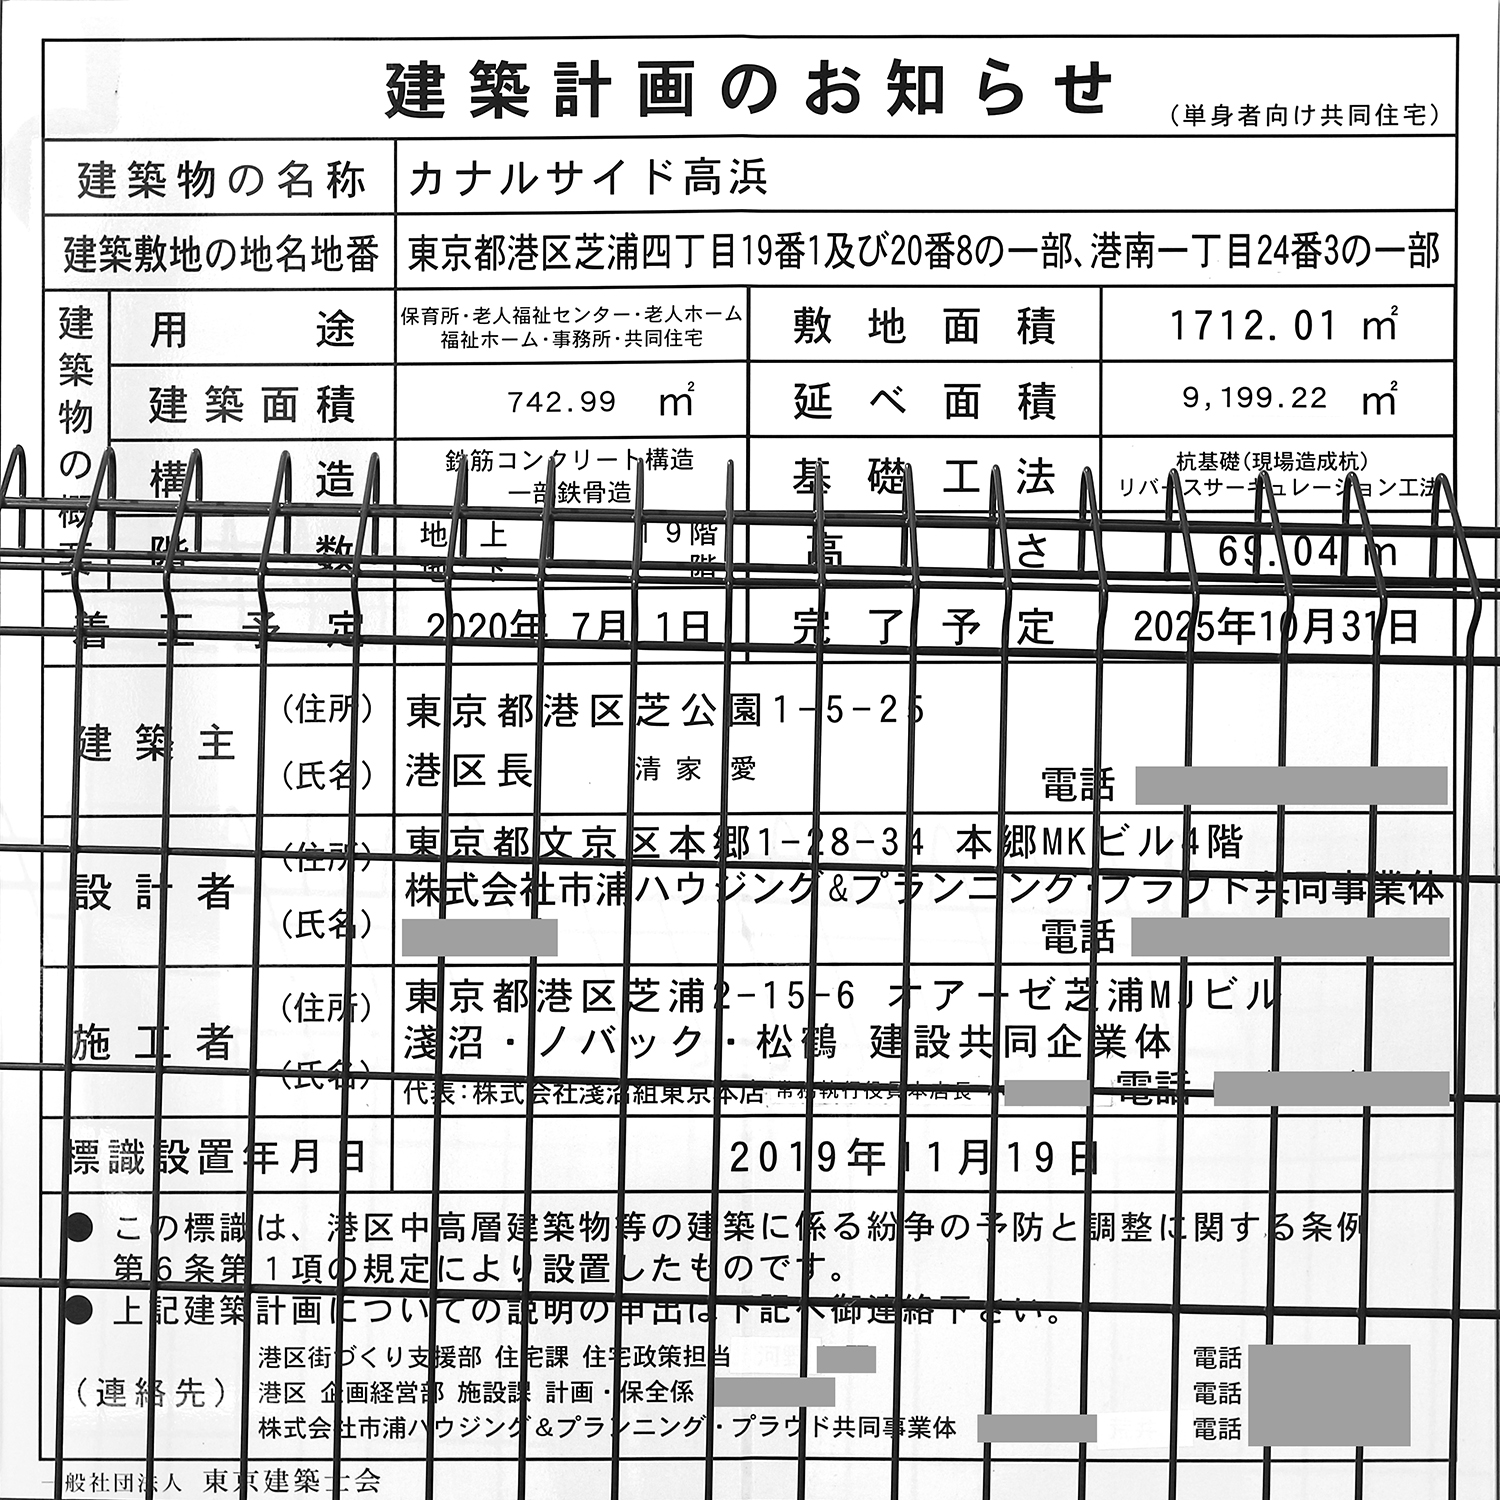 建築計画のお知らせ
(単身者向け共同住宅)
建築物の名称 カナルサイド高浜
建築敷地の地名地番 東京都港区芝浦四丁目19番1及び20番8の一部、港南一丁目24番3の一部
建築物の概要
用途 保育所・老人福祉センター・老人ホーム
福祉ホーム・事務所・共同住宅
敷地面積 1712.01 ㎡
建築面積 742.99 ㎡
延べ面積 9,199.22 ㎡
構造 鉄筋コンクリート構造
一部鉄骨造
基礎工法 杭基礎(現場造成杭)
リバースサーキュレーション工法
階数 地上 19階
地下 階
高さ 69.04 m
着工予定 2020年 7月 1日
完了予定 2025年10月31日
建築主 (住所) 東京都港区芝公園1-5-25
(氏名) 港区長 清家 愛
電話
設計者 (住所) 東京都文京区本郷1-28-34 本郷MKビル4階
株式会社市浦ハウジング&プランニング・プラウド共同事業体
(氏名) 電話
施工者 (住所) 東京都港区芝浦2-15-6 オアーゼ芝浦MJビル
淺沼・ノバック・松鶴 建設共同企業体
(氏名) 代表:株式会社淺沼組東京本店 常務執行役員本店長 電話
標識設置年月日 2019年11月19日
● この標識は、港区中高層建築物等の建築に係る紛争の予防と調整に関する条例
第6条第1項の規定により設置したものです。
● 上記建築計画についての説明の申出は下記へ御連絡下さい。
(連絡先)
港区街づくり支援部 住宅課 住宅政策担当 電話
港区 企画経営部 施設課 計画・保全係 電話
株式会社市浦ハウジング&プランニング・プラウド共同事業体 電話
一般社団法人 東京建築士会